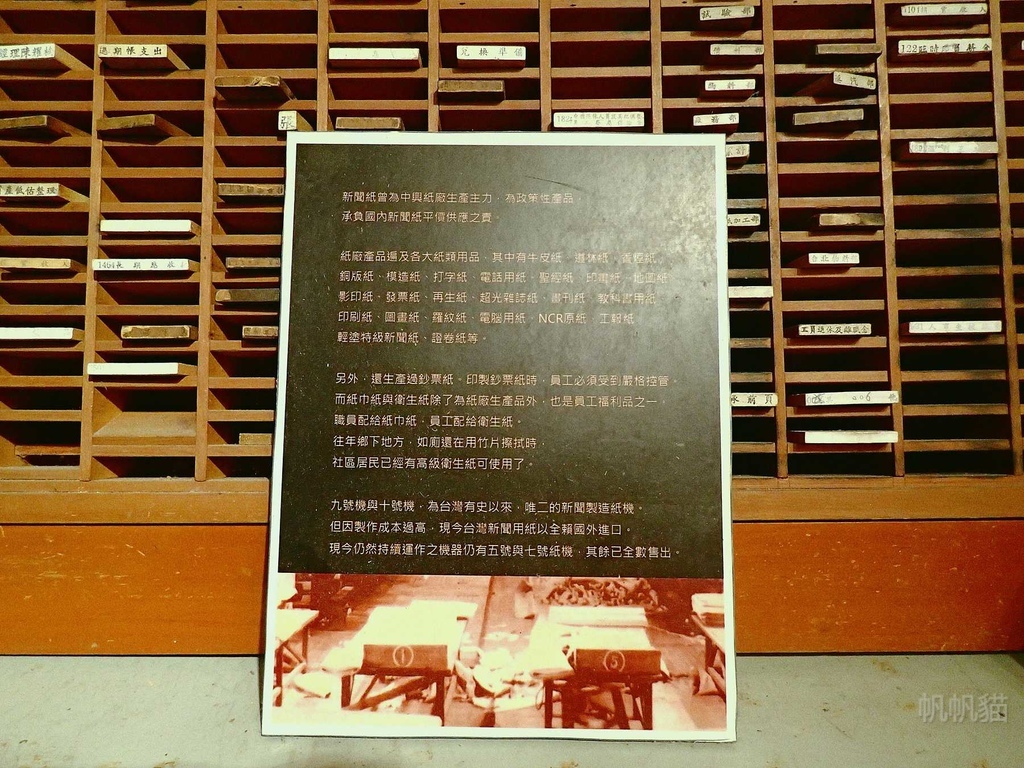 過期帳支出
兌換準備
試驗部
122臨時廠員薪金
張
產低估整理
1464長期應收
紙加工部
工員退休及離職金
新聞紙曾為中興紙廠生產主力,為政策性產品,
承負國內新聞紙平價供應之責。
紙廠產品遍及各大紙類用品,其中有牛皮紙、道林紙、香煙紙、
銅版紙、模造紙、打字紙、電話用紙、聖經紙、印書紙、地圖紙、
影印紙、發票紙、再生紙、超光雜誌紙、書刊紙、教科書用紙、
印刷紙、圖畫紙、羅紋紙、電腦用紙、NCR原紙、工報紙、
輕塗特級新聞紙、證卷紙等。
另外,還生產過鈔票紙。印製鈔票紙時,員工必須受到嚴恪控管。
而紙巾紙與衛生紙除了為紙廠生產品外,也是員工福利品之一,
職員配給紙巾紙,員工配給衛生紙。
往年鄉下地方,如廁還在用竹片擦拭時,
社區居民已經有高級衛生紙可使用了。
九號機與十號機,為台灣有史以來,唯二的新聞製造紙機。
但因製作成本過高,現今台灣新聞用紙以全賴國外進口。
現今仍然持續運作之機器仍有五號與七號紙機,其餘已全數售出。
1
5
帆帆貓